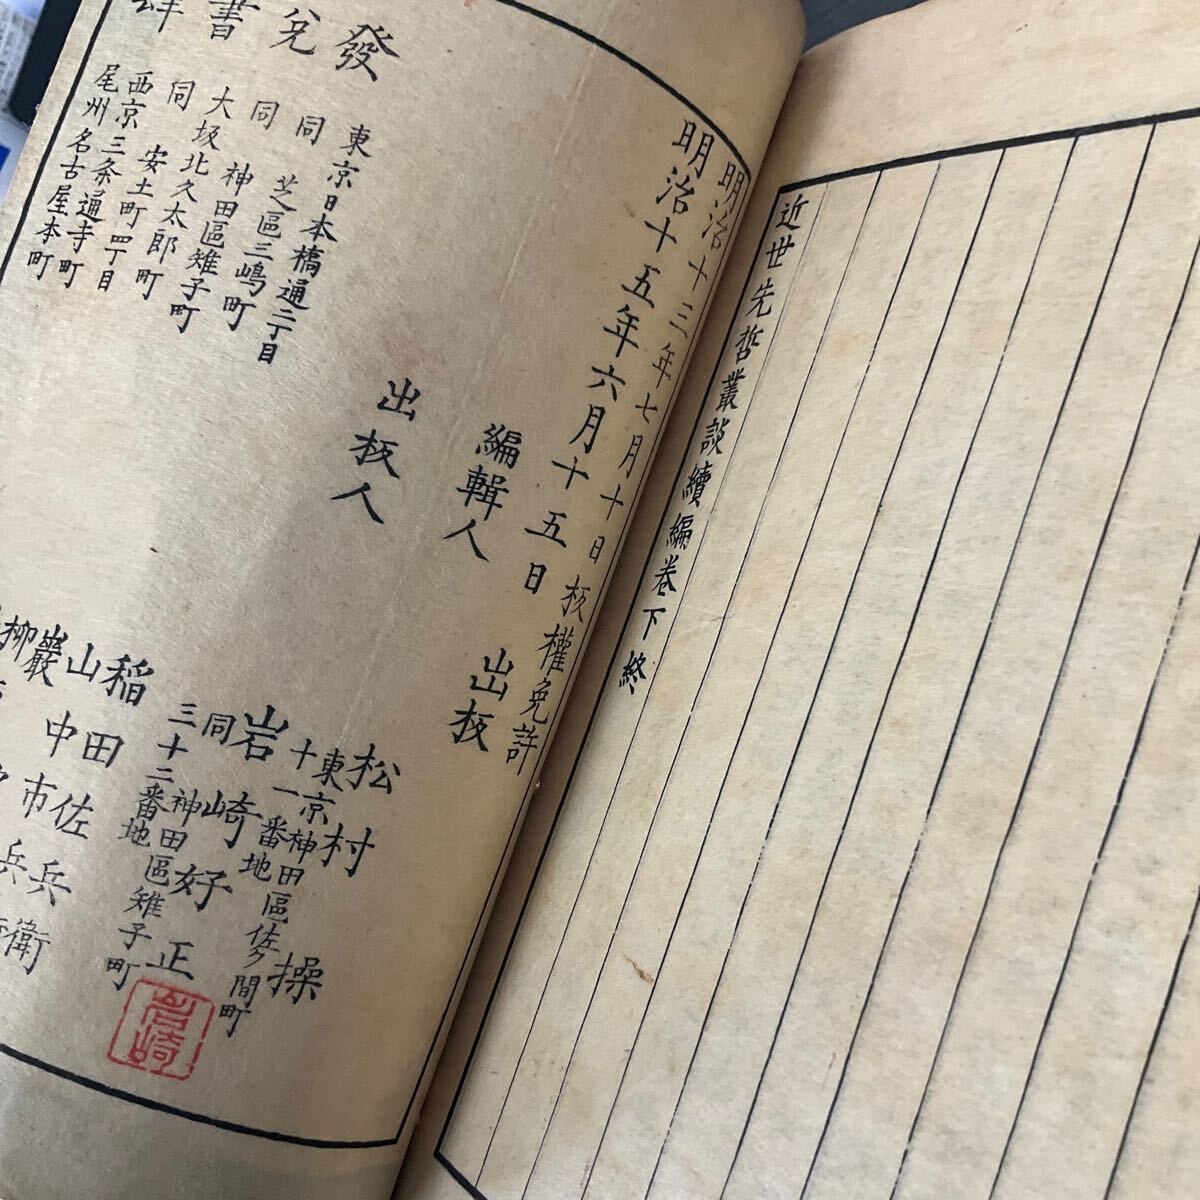 近世先哲叢談續編卷下終
明治十三年七月十日板權免許
明治十五年六月十五日 出板
編輯人
東京神田區佐久間町
十一番地
松村操
出板人
同神田區雉子町
三十二番地
岩崎好正
岩崎
發兌書肆
東京日本橋通二丁目 稲田佐兵衛
同 芝區三嶋町 山中市兵衛
同 神田區雉子町 巖
大坂北久太郎町 柳
同 安土町四丁目
西京三条通寺町
尾州名古屋本町